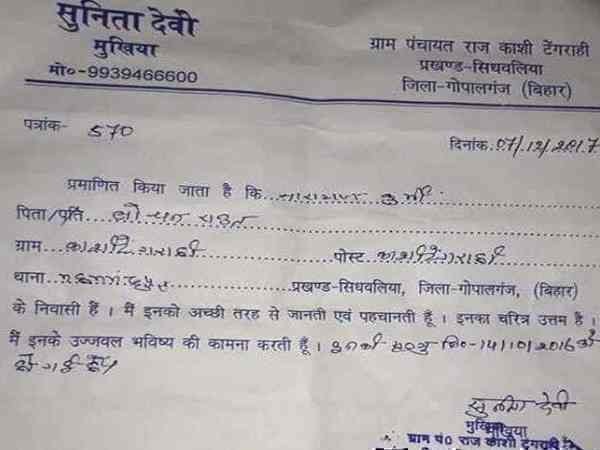 सुनिता देवी
मुखिया
मो०-9939466600
ग्राम पंचायत राज काशी टेंगराही
प्रखण्ड-सिधवलिया
जिला-गोपालगंज (बिहार)
पत्रांक- 570
दिनांक.07/12/2017
प्रमाणित किया जाता है कि
पिता/पति
ग्राम पोस्ट
थाना प्रखण्ड-सिधवलिया, जिला-गोपालगंज, (बिहार)
के निवासी हैं । मैं इनको अच्छी तरह से जानती एवं पहचानती हूँ । इनका चरित्र उत्तम है ।
मैं इनके उज्जवल भविष्य की कामना करती हूँ । इनकी मृत्यु दि०-14/10/2016 को
हो गई है
सुनीता देवी
मुखिया
मुखिया
ग्राम पं० राज काशी टेंगराही